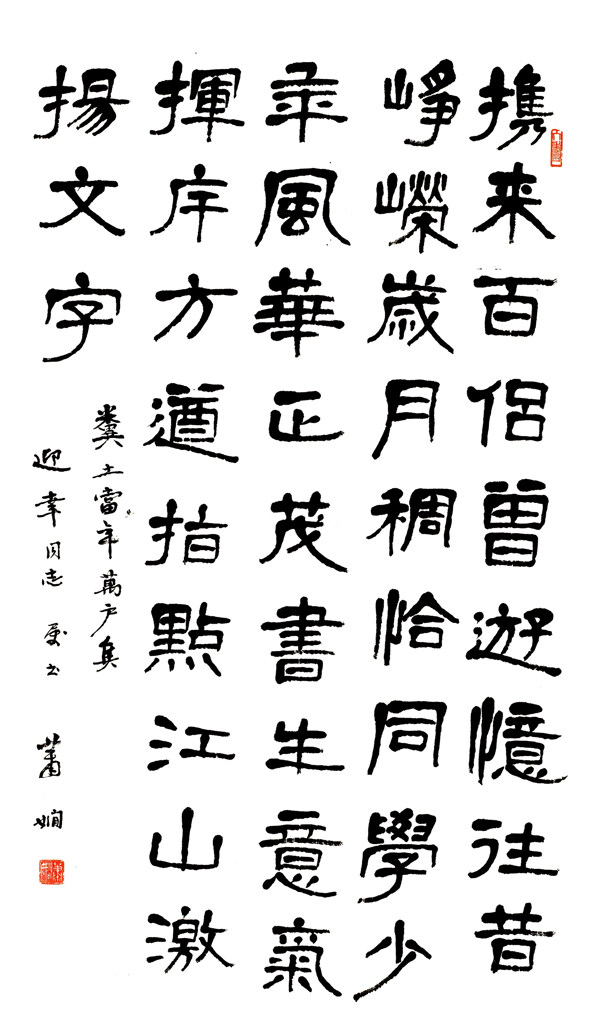 携来百侣曾遊憶往昔
崢嶸歲月稠恰同學少
年風華正茂書生意氣
揮斥方遒指點江山激
揚文字
糞土當年萬户矦
迎幸同志属书 蕭嫻